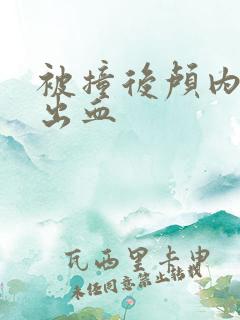 被撞後顱内
出血
瓦西里卡申
未径同意禁止转载